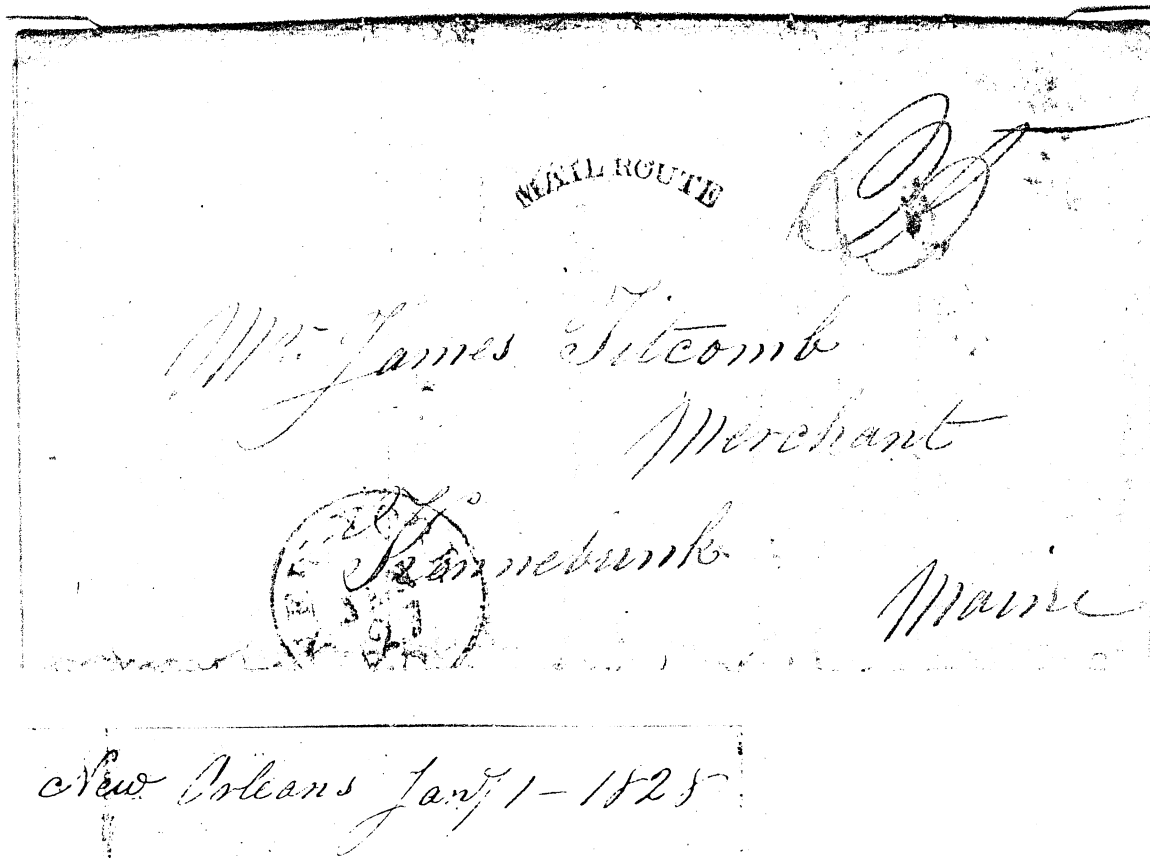 MAIL ROUTE
Mr. James Titcomb
Merchant
Kennebunk
Maine
New Orleans Jany 1 - 1828